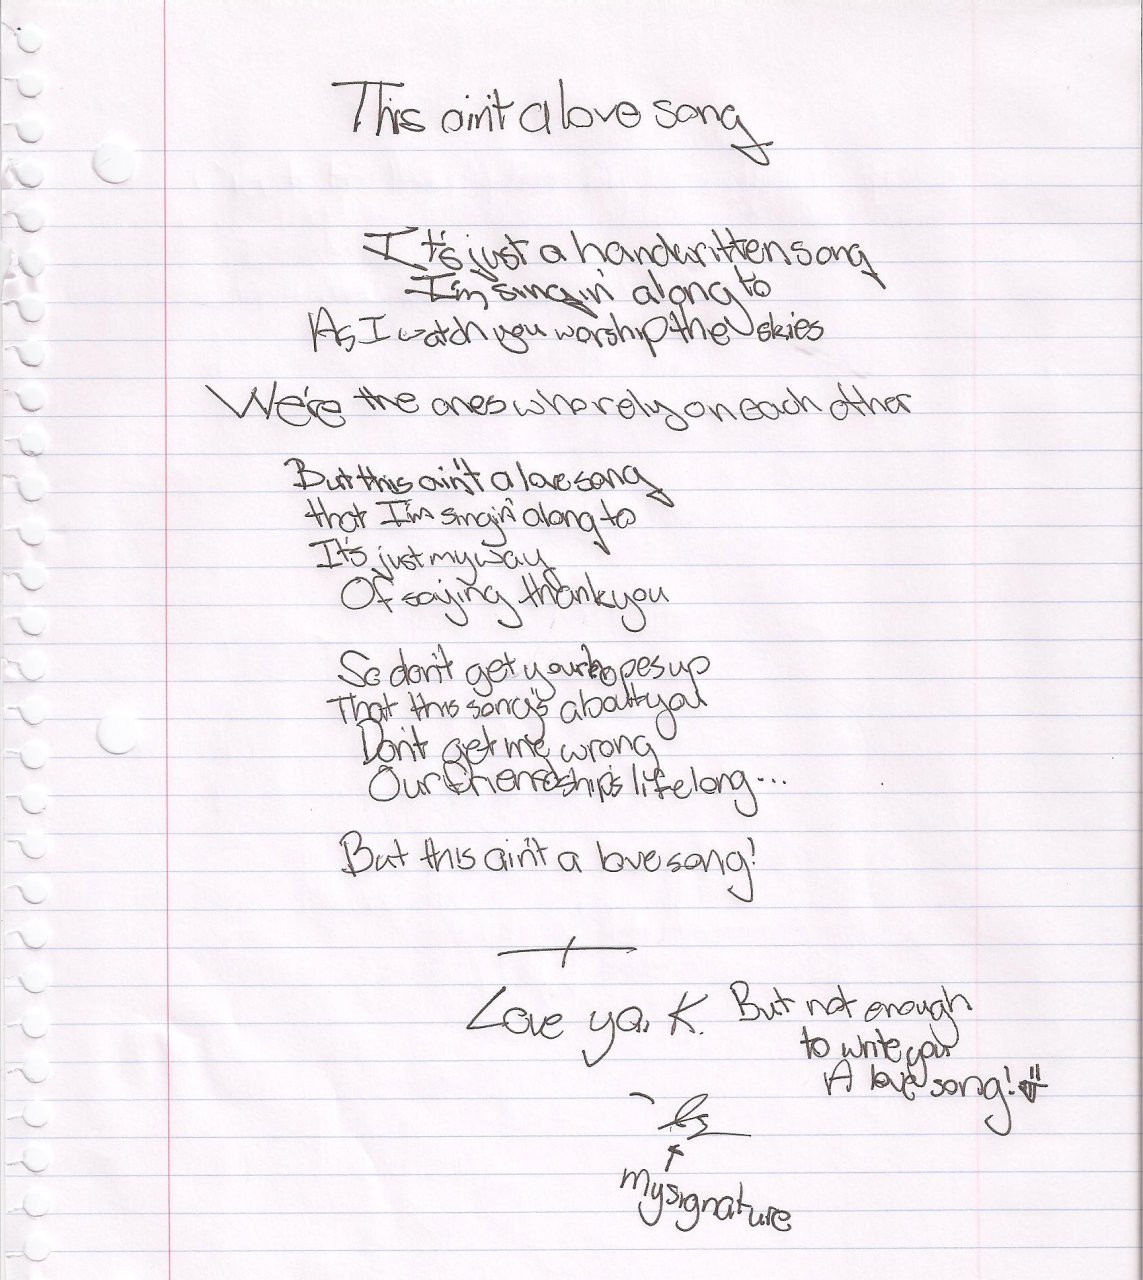 This ain't a love song
It's just a handwritten song
I'm singin' along to
As I watch you worship the skies
We're the ones who rely on each other
But this ain't a love song
that I'm singin' along to
It's just my way
Of saying thank you
So don't get your hopes up
That this song's about you
Don't get me wrong
Our friendship's lifelong...
But this ain't a love song!
Love ya, K. But not enough
to write you
A love song!
my signature